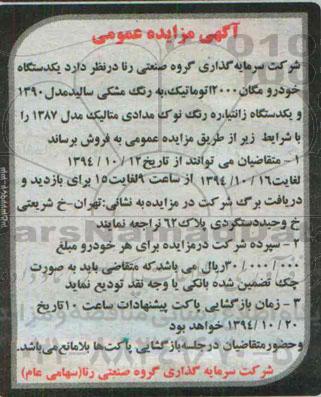 آگهی مزایده عمومی
شرکت سرمایه گذاری گروه صنعتی رنا درنظر دارد یکدستگاه
خودرو مگان۲۰۰۰اتوماتیک،به رنگ مشکی سالیدمدل۱۳۹۰
و یکدستگاه زانتیا،به رنگ نوک مدادی متالیک مدل ۱۳۸۷ را
با شرایط زیر از طریق مزایده عمومی به فروش برساند
۱ - متقاضیان می توانند از تاریخ۱۲ /۱۰ /۱۳۹۴
لغایت۱۶ /۱۰ /۱۳۹۴ از ساعت ۹لغایت۱۵ برای بازدید و
دریافت برگ شرکت در مزایده،به نشانی:تهران-خ شریعتی
خ وحیددستگردی پلاک۶۲ مراجعه نمایند
۲ - سپرده شرکت درمزایده برای هر خودرو مبلغ
۳۰/۰۰۰/۰۰۰ریال می باشد،که متقاضی باید به صورت
چک تضمین شده بانکی یا وجه نقد تودیع نماید
۳ - زمان بازگشایی پاکت پیشنهادات ساعت ۱۰تاریخ
۲۰ /۱۰ /۱۳۹۴ خواهد بود
وحضورمتقاضیان درجلسه‌بازگشایی پاکت‌ها بلامانع می‌باشد.
شرکت سرمایه گذاری گروه صنعتی رنا(سهامی عام)